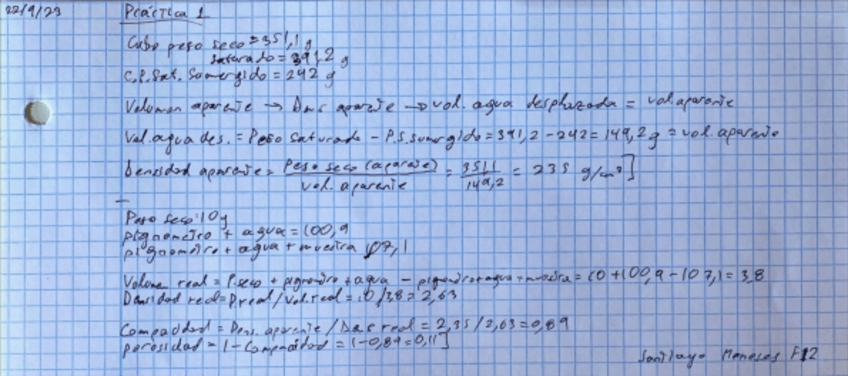 22/9/23 Práctica 1
Cubo peso seco = 351,1 g
saturado = 391,2 g
C.P.Sat. Sumergido = 242 g
Volumen aparente → Dens aparente → vol. agua desplazada = vol.aparente
Vol.agua des. = Peso saturado - P.S.sumergido = 391,2 - 242 = 149,2 g = vol. aparente
Densidad aparente = Peso seco (aparente) / vol. aparente = 351,1 / 149,2 = 2,35 g/cm³]
Peso seco: 10g
pignometro + agua = 100,9
pignometro + agua + muestra 107,1
Volumen real = P.seco + pignometro + agua - pignometro+agua+muestra = 10 + 100,9 - 107,1 = 3,8
Densidad real = P real / Vol.real = 10 / 3,8 = 2,63
Compacidad = Dens. aparente / Dens real = 2,35 / 2,63 = 0,89
porosidad = 1 - Compacidad = 1 - 0,89 = 0,11]
Santiago Meneses F12